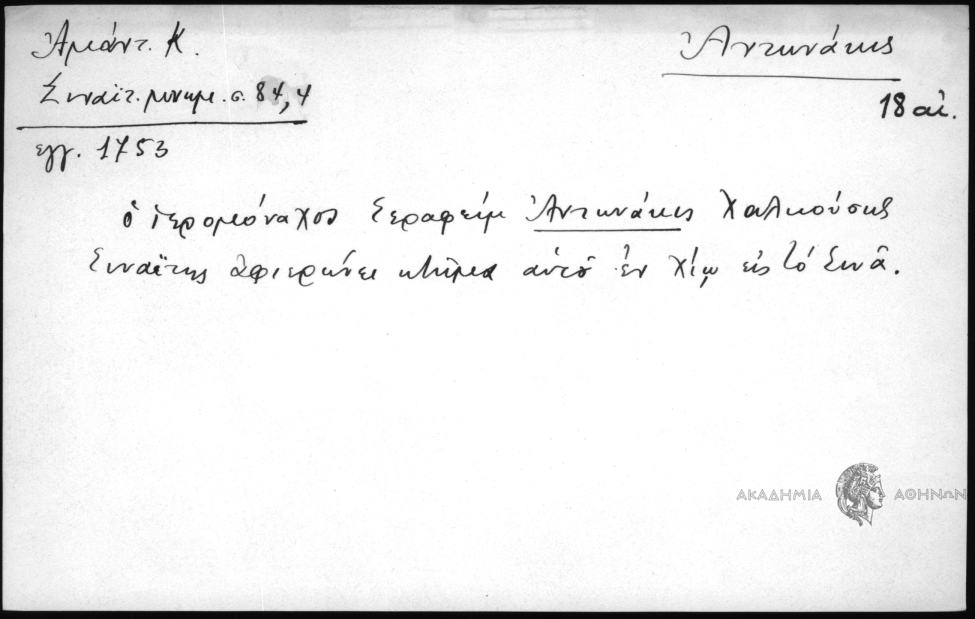 Ἀμάντ. Κ.
Σιναϊτ. μνημ. σ. 84,4
εγγ. 1753
Ἀντωνάκις
18 αἰ.
ὁ ἱερομόναχος Σεραφείμ Ἀντωνάκις Χαλκούσης
Σιναΐτης ἀφιερώνει κτῆμα αὐτοῦ ἐν Χίῳ εἰς τό Σινᾶ.
ΑΚΑΔΗΜΙΑ ΑΘΗΝΩΝ